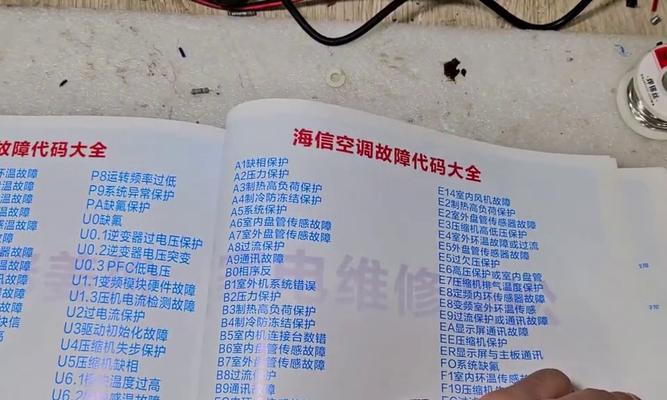 故障代码大全
P8运转频率过低
P9系统异常保护
PA缺氟保护
U0缺氟
U0.1逆变器过电压保护
U0.2逆变器电压突变
U0.3 PFC低电压
U1.1变频模块硬件故障
U1.3压机电流检测故障
U2过电流保护
U3驱动初始化故障
U4压缩机失步保护
U5压缩机缺相
海信空调故障代码大全
A1缺相保护
A2压力保护
A3制热高负荷保护
A4制冷防冻结保护
A5系统保护
A6室内盘管传感故障
A7室外盘管传感故障
A8过流保护
A9通讯故障
B0相序反
B1室外机系统错误
B2压力保护
B3制热高负荷保护
B4制冷防冻结保护
B5室内机连接台数错
B6室内盘管传感故障
B7室外盘管传感故障
B8过流保护
B9通讯故障
E14室内风机故障
E2制热高负荷保护
E2室外盘管传感器故障
E3压缩机高低压保护
E4室外环温故障或过流
E5过欠压保护
E6高压保护或室内盘管
E7压缩机排气温度保护
E8定频内环传感器故障
E8变频室外环温传感
E9过流保护或通讯故障
EA显示屏通讯故障
EE压缩机保护
ER显示屏与主板通讯
FO系统缺氟
F1室内环温传感
F19压缩机